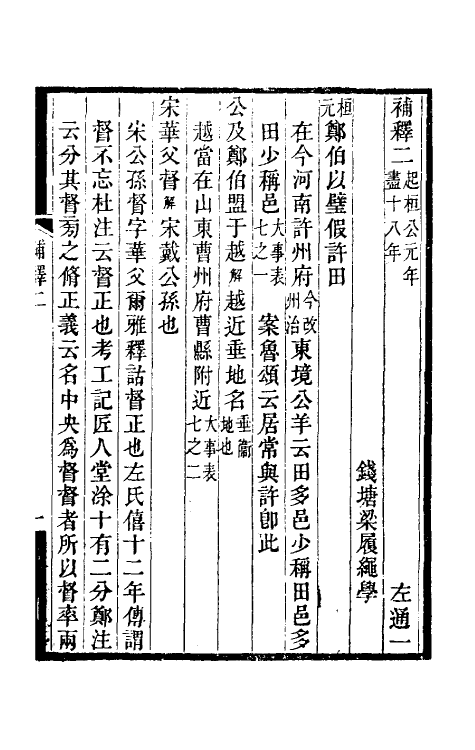 補釋二起桓公元年盡十八年　左通一
錢塘梁履繩學
桓元鄭伯以璧假許田
在今河南許州府今改州治東境公羊云田多邑少稱田邑多
田少稱邑大事表七之一　案魯頌云居常與許卽此
公及鄭伯盟于越解越近垂地名垂衞地也
越當在山東曹州府曹縣附近大事表七之二
宋華父督解宋戴公孫也
宋公孫督字華父爾雅釋詁督正也左氏僖十二年傳謂
督不忘杜注云督正也考工記匠人堂涂十有二分鄭注
云分其督菊之脩正義云名中央爲督督者所以督率兩
補釋二
一